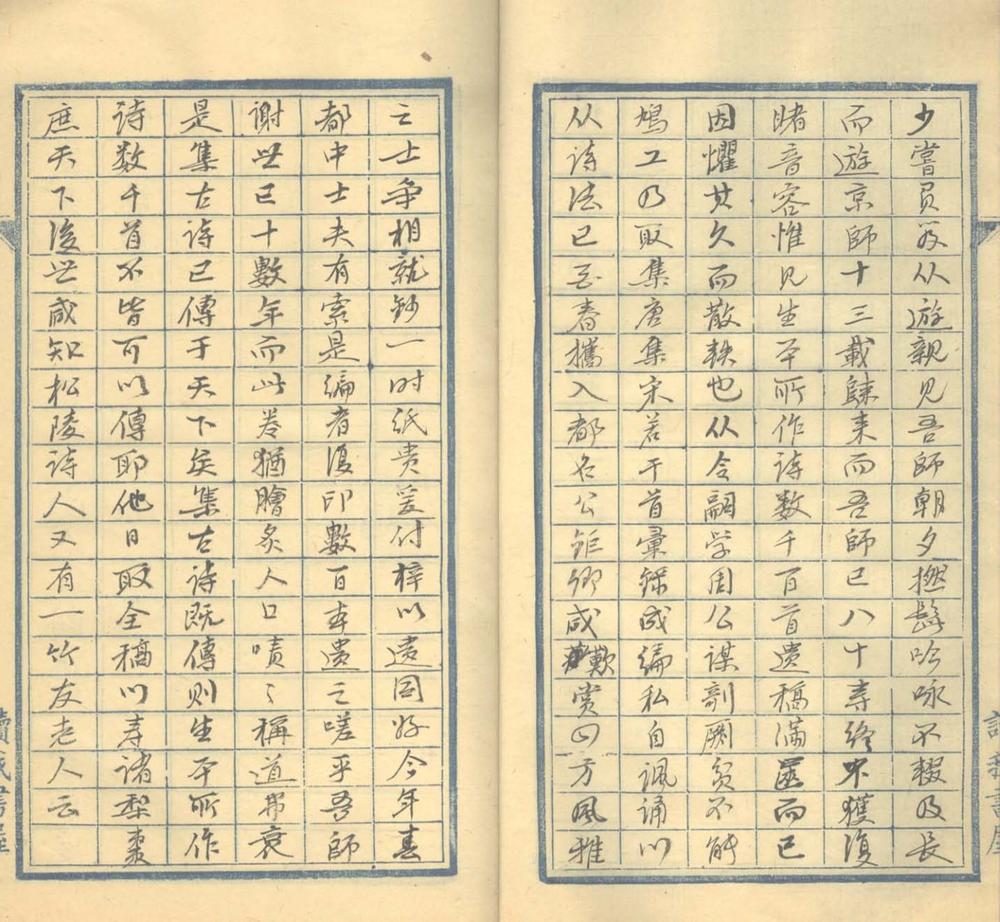 少嘗負笈从遊親見吾師朝夕撚髭吟咏不輟及長
而遊京師十三載歸来而吾師已八十壽终不獲復
睹音容惟见生平所作诗数千百首遗稿满匧而已
因懼其久而散軼也从令嗣学周公謀剞劂贫不能
鳩工乃取集唐集宋若干首彙錄成编私自讽诵以
从诗法已
春攜入都名公鉅卿咸歎赏四方風雅
之士争相就鈔一时纸贵爰付梓以遗同好今年春
都中士夫有索是编者復印數百本遗之嗟乎吾師
谢世已十數年而此卷猶膾炙人口嘖〻稱道弗衰
是集古诗已傳于天下矣集古诗既傳则生平所作
诗数千首不皆可以傳耶他日取全稿以寿诸梨棗
庶天下後世咸知松陵诗人又有一竹友老人云